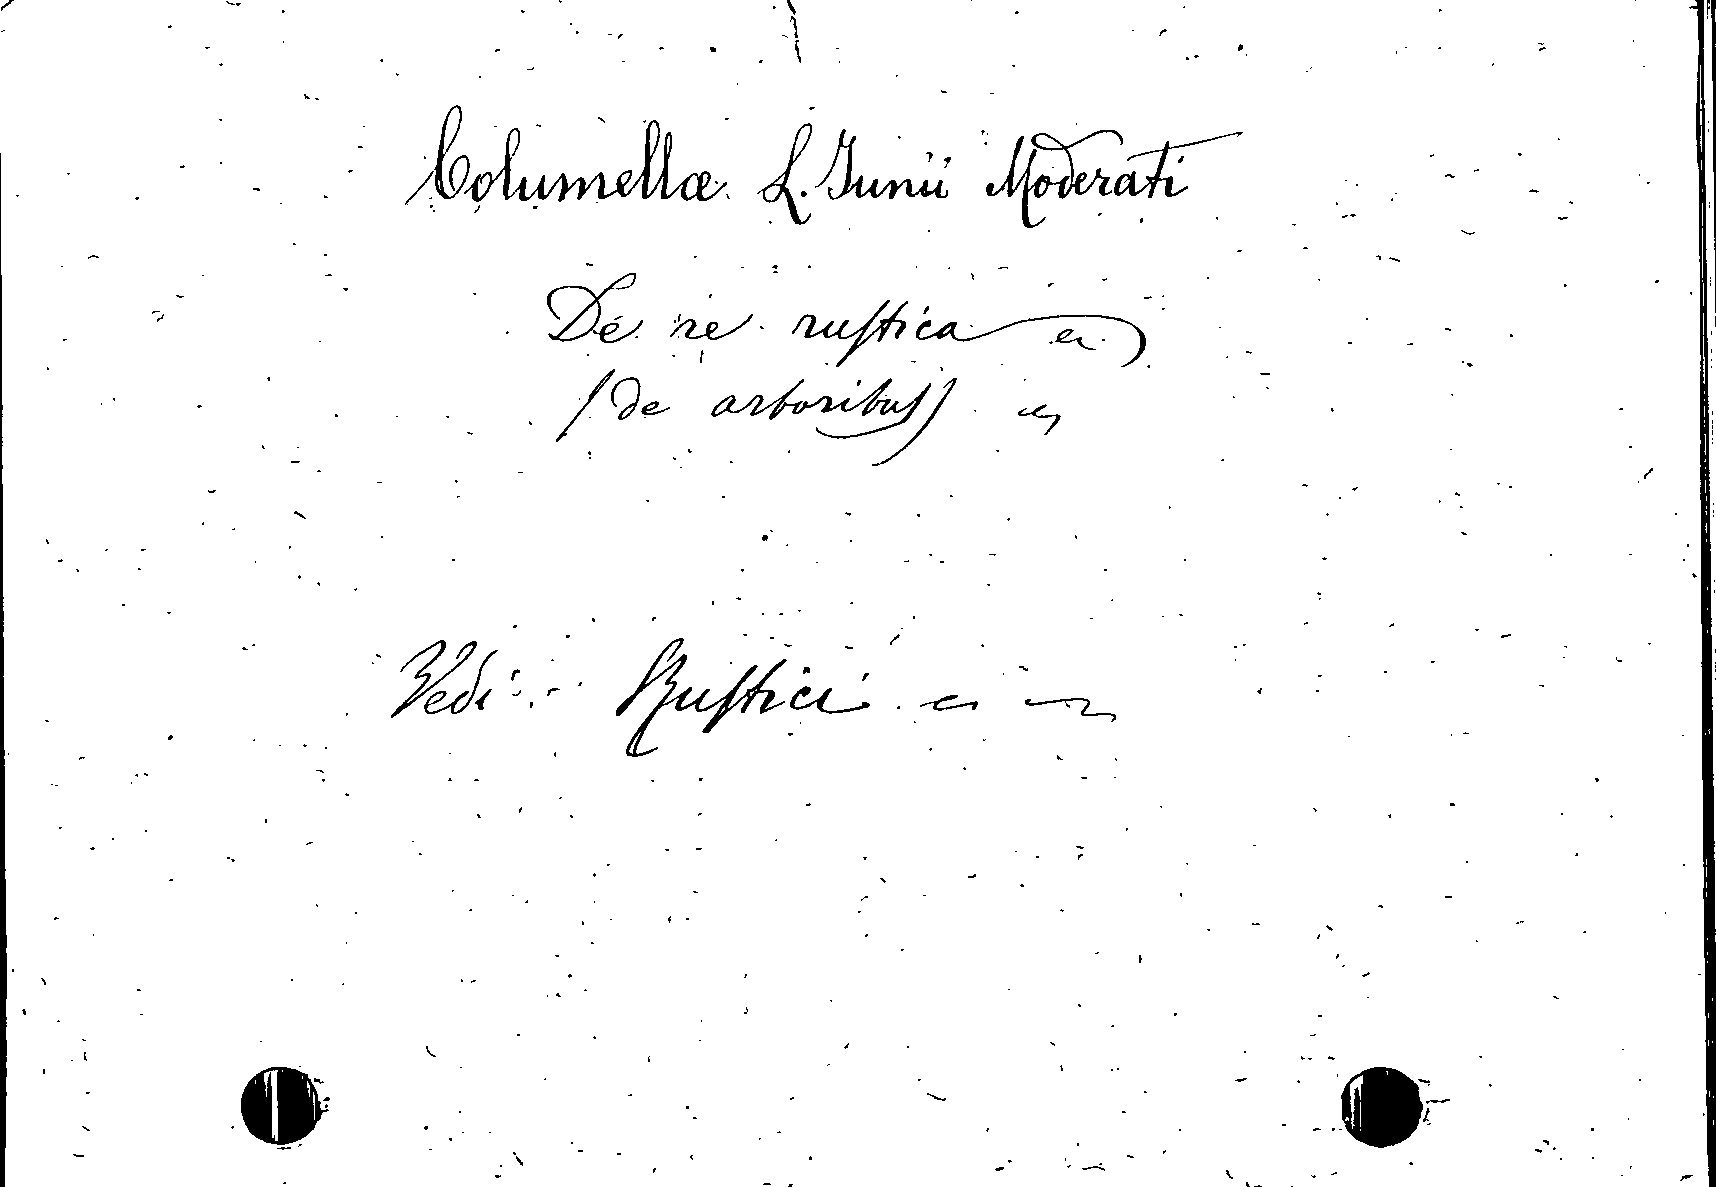 Columellæ L. Junii Moderati
De re rustica
(de arboribus)
Vedi: Rustici